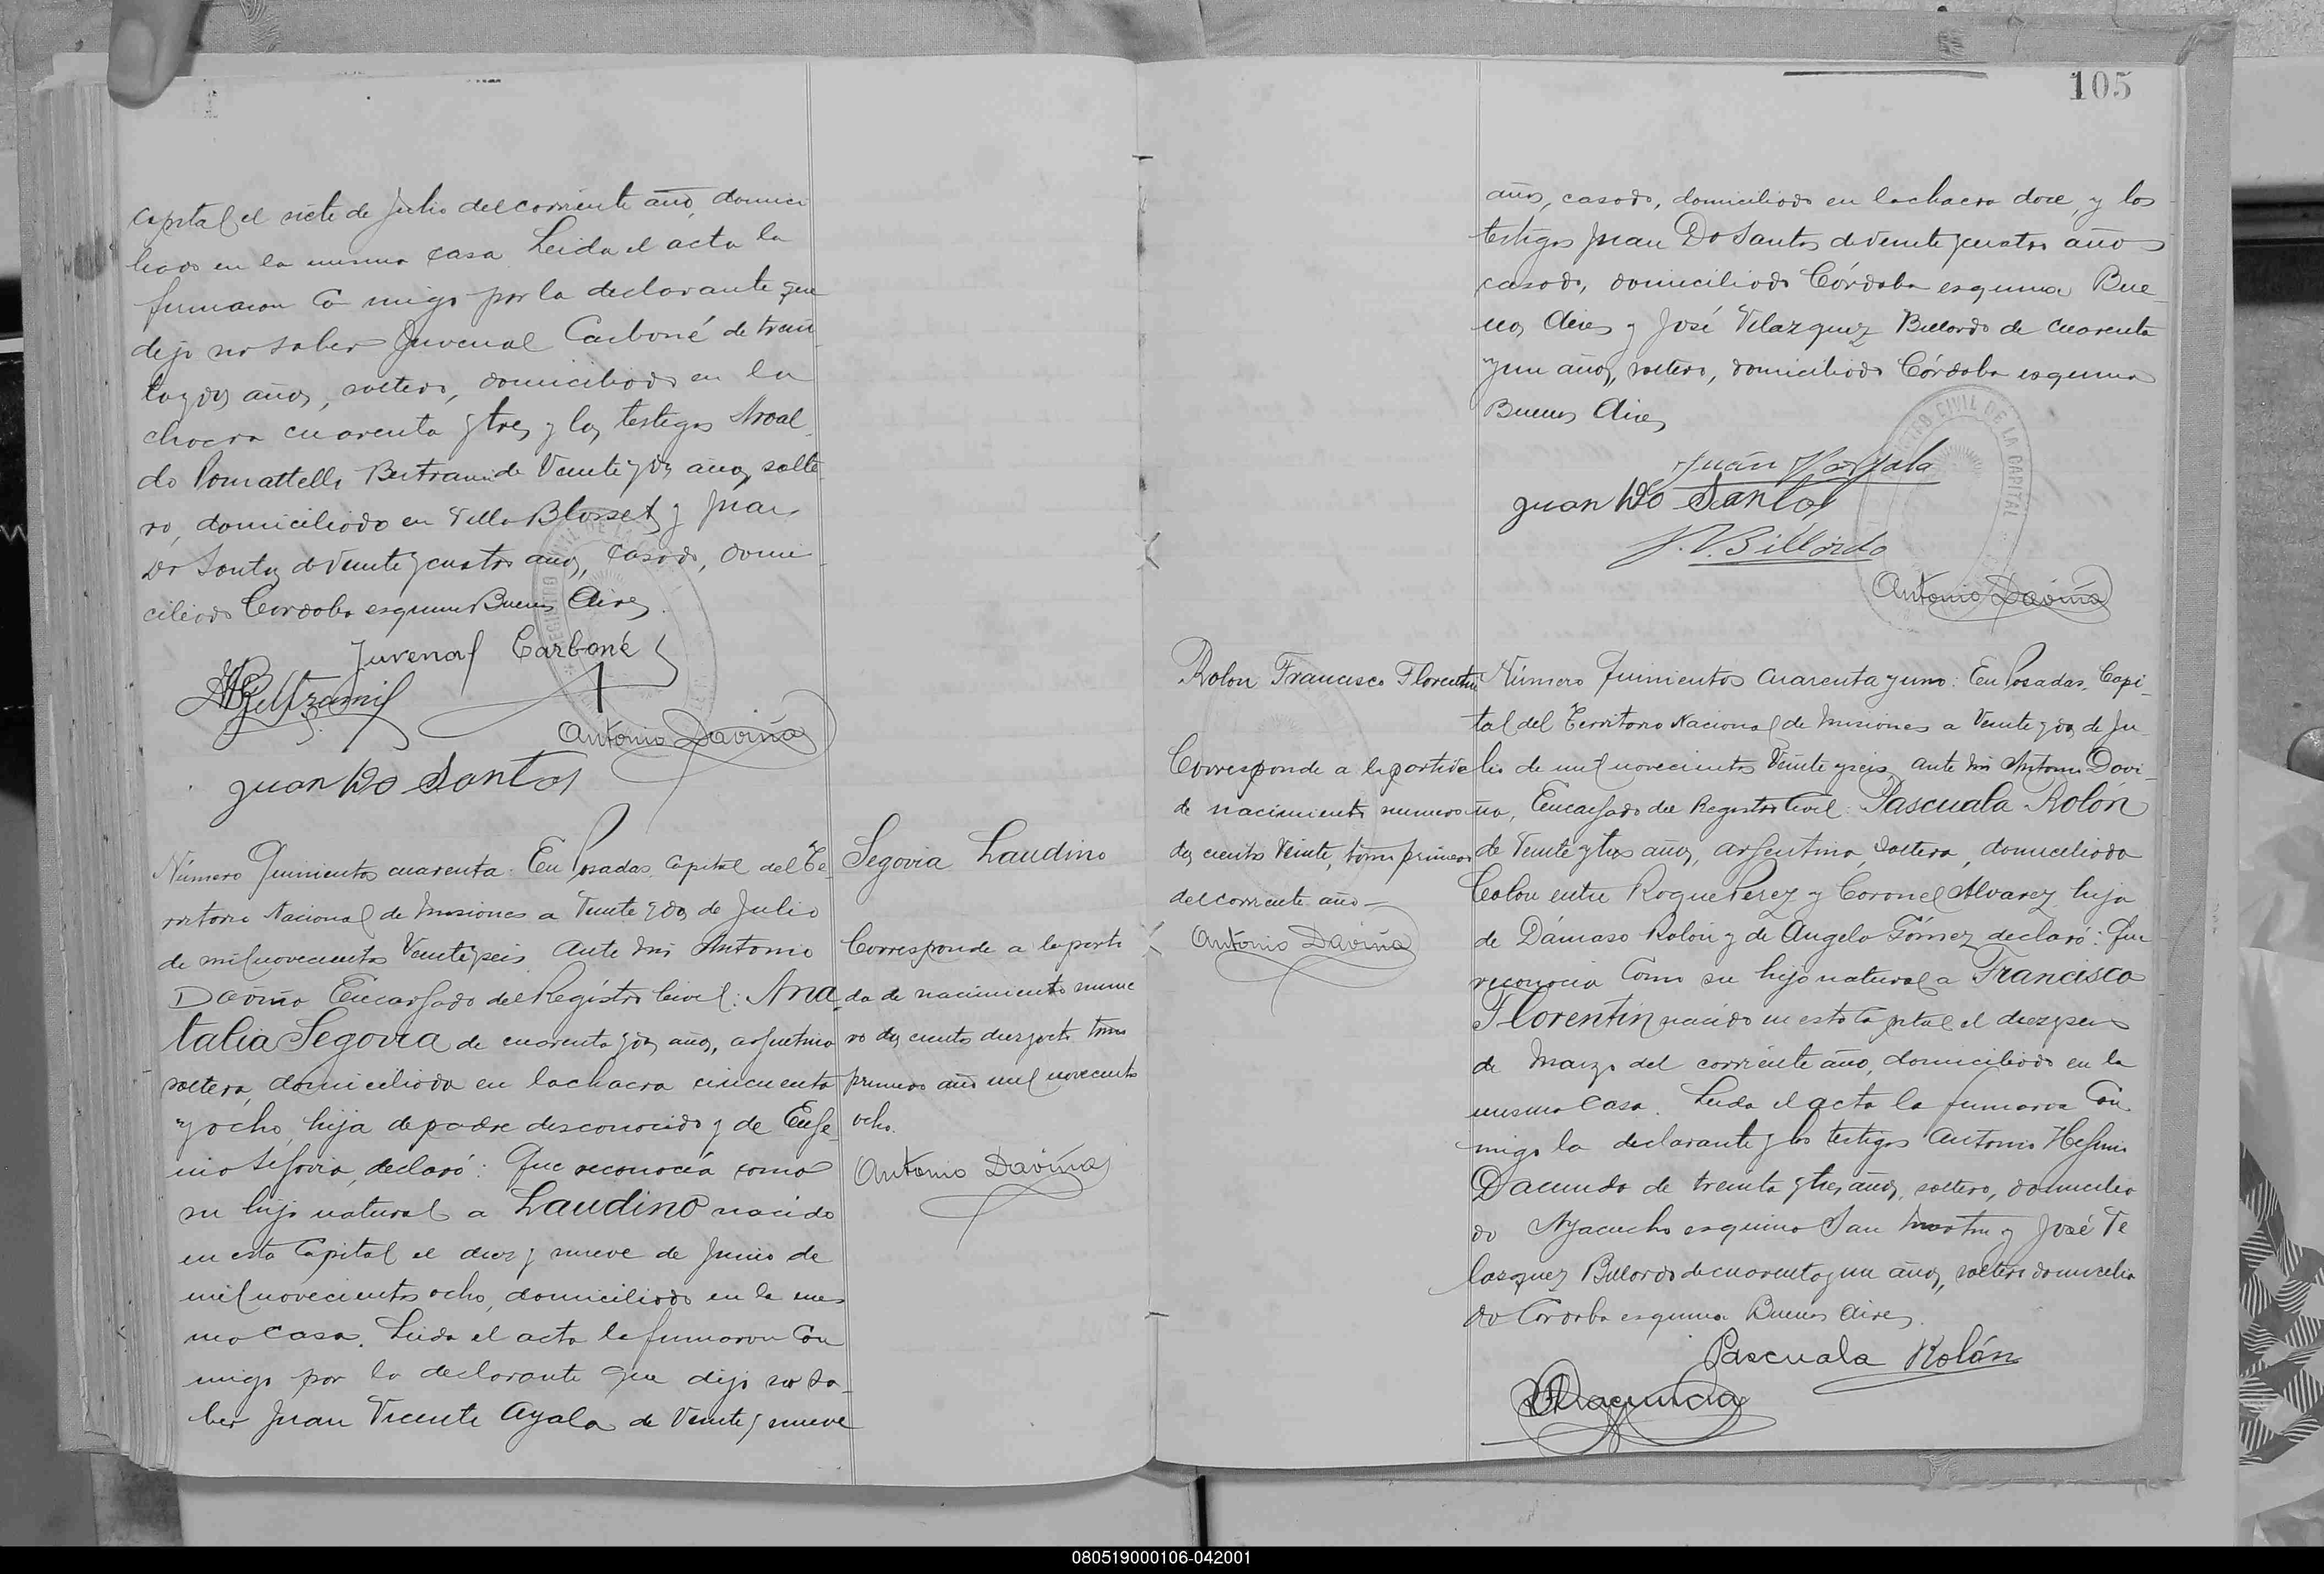 capital el siete de Julio del corriente año, domici
liado en la misma casa Leida el acta la
firmaron Con migo por la declarante que
dijo no saber Juvenal Carboné de trein
taydos años, soltero, domiciliado en la
chacra cuarenta y tres y los testigos Aroal
do Pomattelli Bertrami de Veinte y dos años, solte
ro, domiciliado en Villa Blosset y Juan
Do Santos de Veinte y cuatro años, Casado, domi
ciliado Cordoba esquina Buenos Aires.
Juvenal Carboné
ABeltrami
Antonio Daviña
Juan Do Santos
Número Quinientos cuarenta: En Posadas, Capital del Te-
rritorio Nacional de Misiones a Veinte y dos de Julio
de mil novecientos Veinte y seis Ante mi Antonio
Daviña Encargado del Registro Civil: Ana
talia Segovia de cuarenta y dos años, argentina
soltera, domiciliada en la chacra cincuenta
y ocho, hija de padre desconocido y de Eufe
mia Segovia, declaró: Que reconocía como
su hijo natural a Laudino nacido
en esta Capital el diez y nueve de Junio de
mil novecientos ocho, domiciliado en la mis
ma casa. Leida el acta la firmaron Con
migo por la declarante que dijo no sa-
ber Juan Vicente Ayala de Veinte y nueve
Segovia Laudino
Corresponde a la parti
da de nacimiento nume
ro dos ciento diezyocho tomo
primero año mil novecientos
ocho.
Antonio Daviña
105
años, casado, domiciliado en la chacra doce, y los
testigos Juan Do Santos de Veinte y cuatro años
casado, domiciliado Córdoba esquina Bue-
nos Aires y José Velazquez Billordo de cuarenta
y un años, soltero, domiciliado Córdoba esquina
Buenos Aires
REGISTRO CIVIL DE LA CAPITAL
Juan V Ayala
Juan Do Santos
J. V. Billordo
Antonio Daviña
Rolon Francisco Florentin
Corresponde a la partida
de nacimiento numero
dos ciento Veinte, tomo primero
del corriente año-
Antonio Daviña
Número Quinientos Cuarenta y uno: En Posadas, Capi-
tal del Territorio Nacional de Misiones a Veinte y dos de Ju-
lio de mil novecientos Veinte y seis, ante mi Antonio Davi-
ña, Encargado del Registro Civil: Pascuala Rolón
de Veinte y tres años, argentina, soltera, domiciliada
Colon entre Roque Perez y Coronel Alvarez, hija
de Dámaso Rolón y de Angela Gómez declaró: Que
reconocía Como su hijo natural a Francisco
Florentin nacido en esta Capital el diez y seis
de Marzo del corriente año, domiciliado en la
misma Casa. Leida el acta la firmaron Con
migo la declarante y los testigos Antonio Hefimio
Dacunda de treinta y tres años, soltero, domicilia
do Ayacucho esquina San Martin y José Ve
lasquez Billordo de cuarenta y un años, soltero domicilia
do Cordoba esquina Buenos Aires.
Pascuala Rolón
080519000106-042001